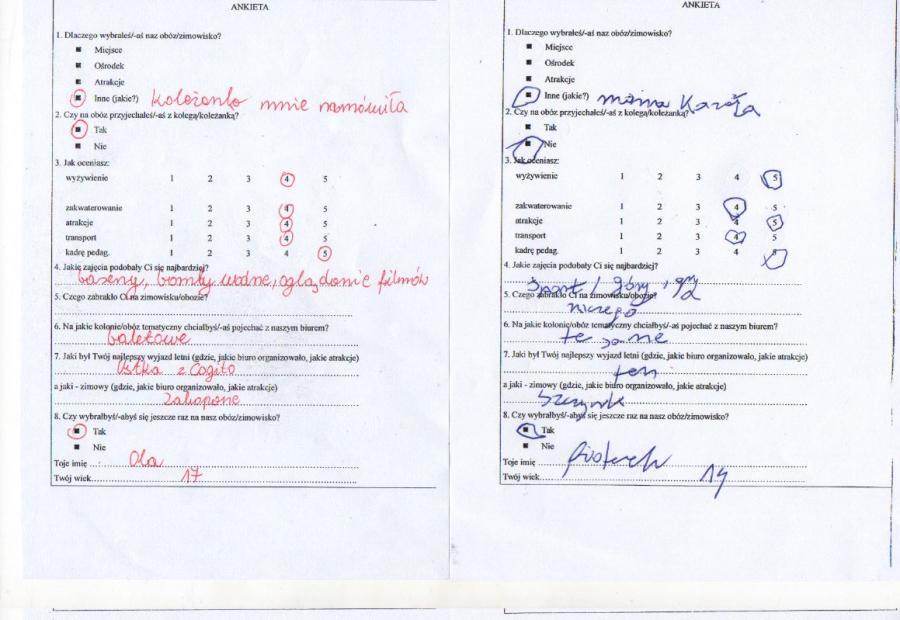 ANKIETA
1. Dlaczego wybrałeś/-aś naz obóz/zimowisko?
Miejsce
Ośrodek
Atrakcje
Inne (jakie?) koleżanka mnie namówiła
2. Czy na obóz przyjechałeś/-aś z kolegą/koleżanką?
Tak
Nie
3. Jak oceniasz:
wyżywienie 1 2 3 4 5
zakwaterowanie 1 2 3 4 5
atrakcje 1 2 3 4 5
transport 1 2 3 4 5
kadrę pedag. 1 2 3 4 5
4. Jakie zajęcia podobały Ci się najbardziej?
baseny, bomby wodne, oglądanie filmów
5. Czego zabrakło Ci na zimowisku/obozie?
6. Na jakie kolonie/obóz tematyczny chciałbyś/-aś pojechać z naszym biurem?
baletowe
7. Jaki był Twój najlepszy wyjazd letni (gdzie, jakie biuro organizowało, jakie atrakcje)
Ustka z Cogito
a jaki - zimowy (gdzie, jakie biuro organizowało, jakie atrakcje)
Zakopane
8. Czy wybrałbyś/-abyś się jeszcze raz na nasz obóz/zimowisko?
Tak
Nie
Toje imię Ola
Twój wiek 17
ANKIETA
1. Dlaczego wybrałeś/-aś naz obóz/zimowisko?
Miejsce
Ośrodek
Atrakcje
Inne (jakie?) mama Kazała
2. Czy na obóz przyjechałeś/-aś z kolegą/koleżanką?
Tak
Nie
3. Jak oceniasz:
wyżywienie 1 2 3 4 5
zakwaterowanie 1 2 3 4 5
atrakcje 1 2 3 4 5
transport 1 2 3 4 5
kadrę pedag. 1 2 3 4
4. Jakie zajęcia podobały Ci się najbardziej?
Sport / góry, gry
5. Czego zabrakło Ci na zimowisku/obozie?
niczego
6. Na jakie kolonie/obóz tematyczny chciałbyś/-aś pojechać z naszym biurem?
te same
7. Jaki był Twój najlepszy wyjazd letni (gdzie, jakie biuro organizowało, jakie atrakcje)
ten
a jaki - zimowy (gdzie, jakie biuro organizowało, jakie atrakcje)
Szczyrk
8. Czy wybrałbyś/-abyś się jeszcze raz na nasz obóz/zimowisko?
Tak
Nie
Toje imię
Twój wiek 14